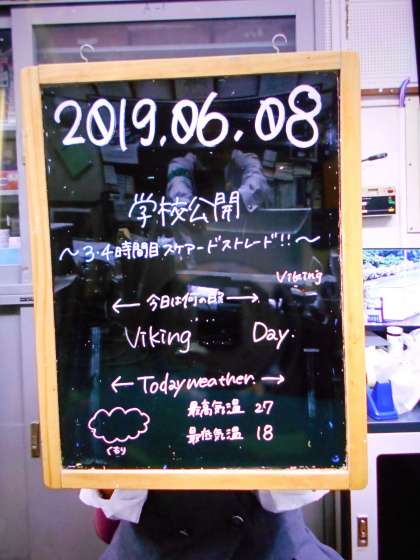 2019.06.08
学校公開
〜3・4時間目スケアードストレード!!〜
Viking
← 今日は何の日? →
Viking Day.
← Todayweather. →
最高気温 27
最低気温 18
くもり